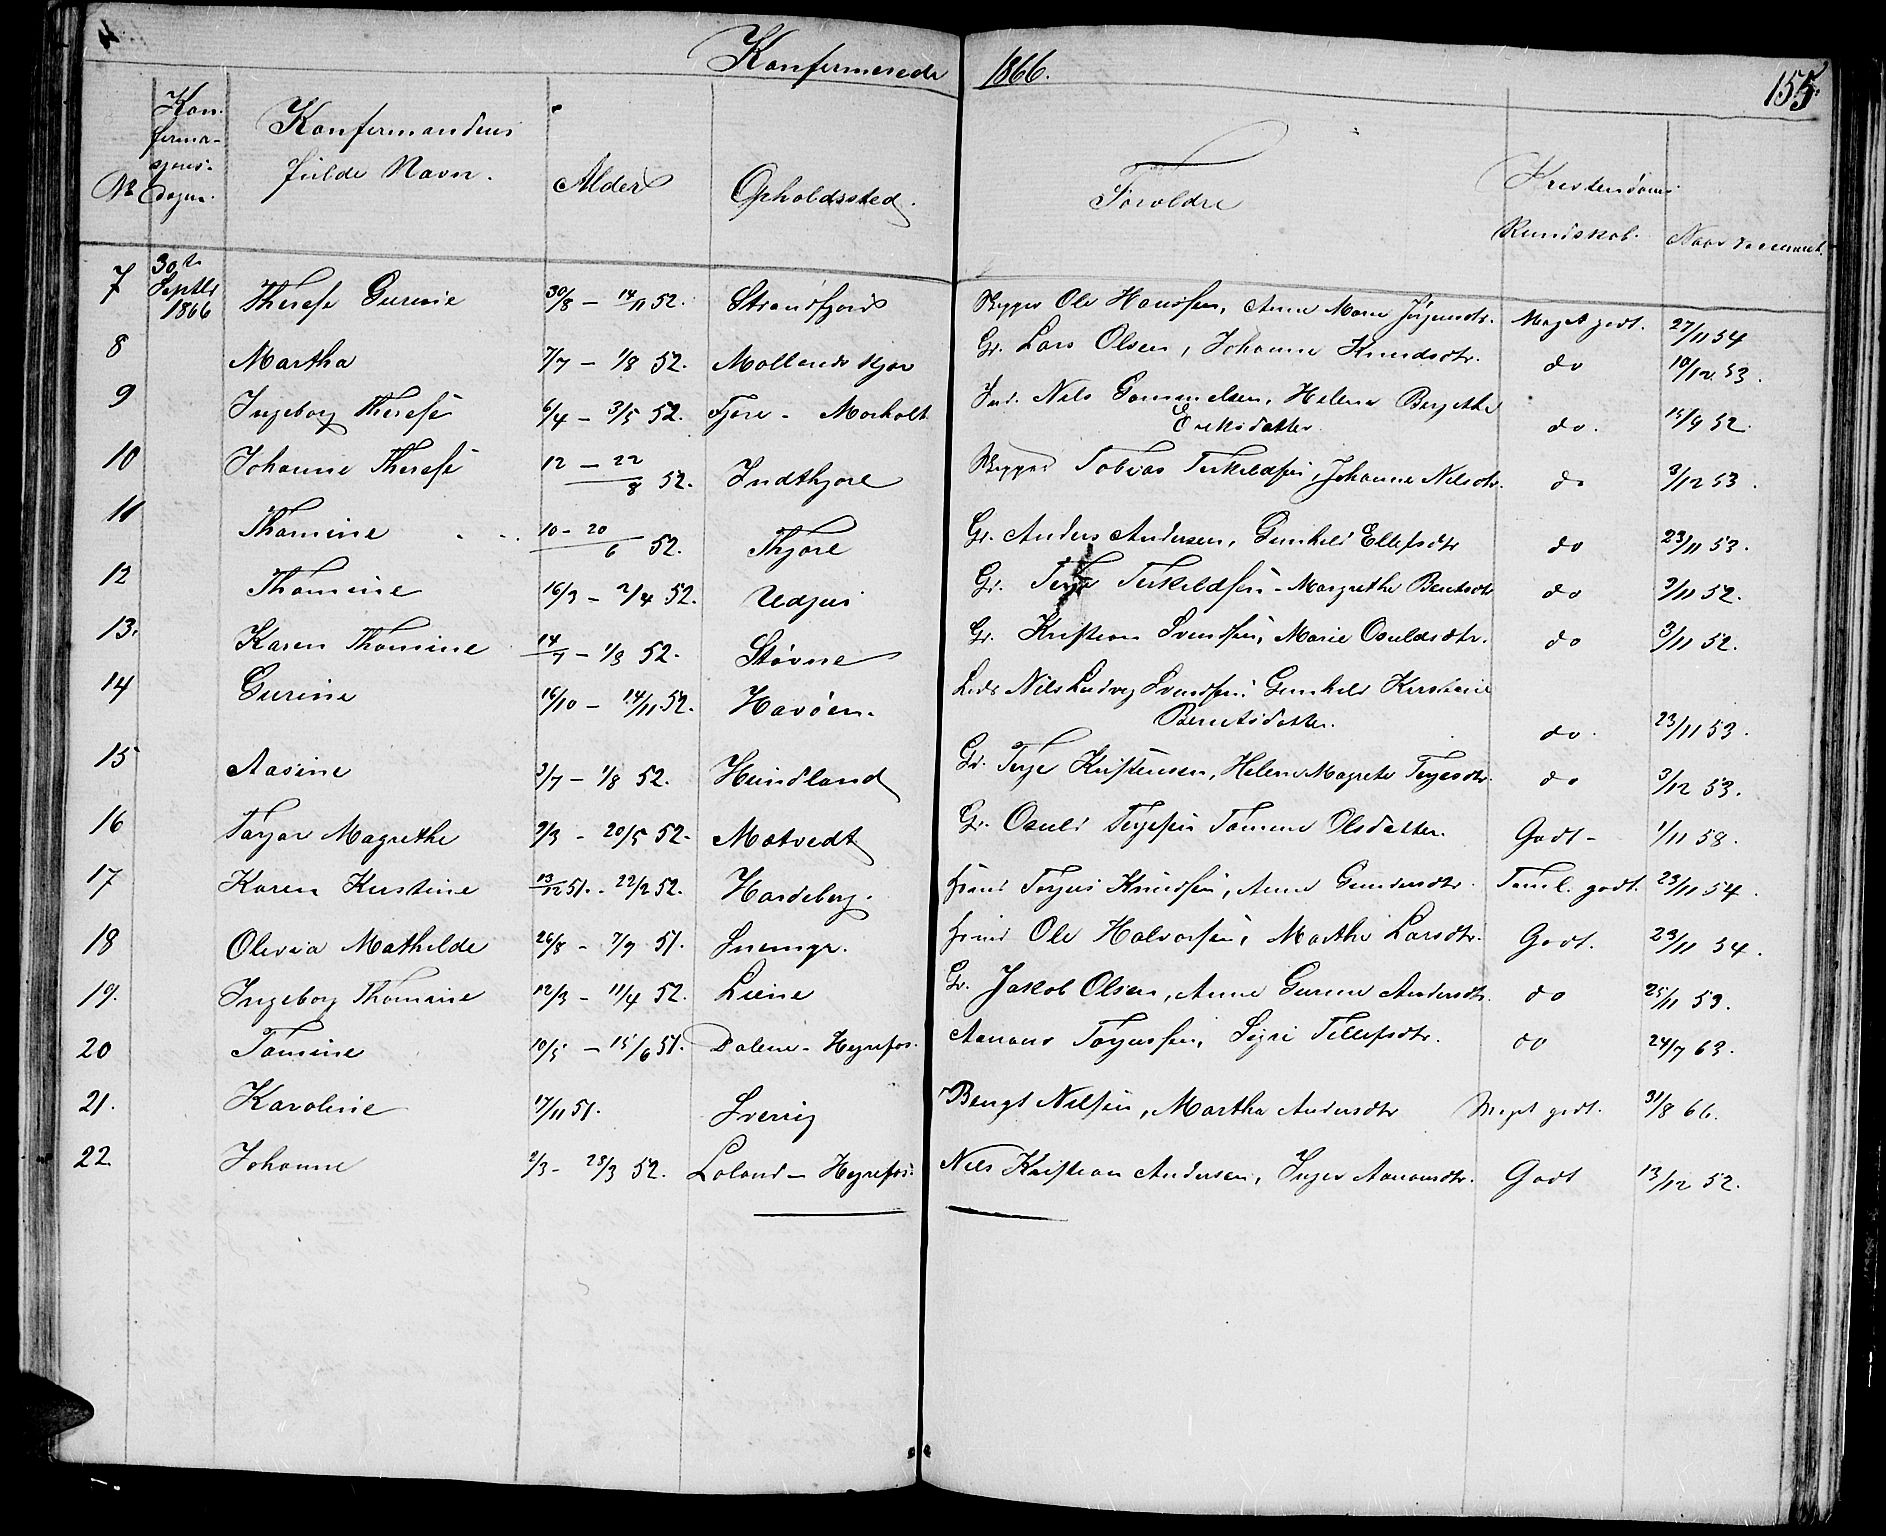 Konfermerede 1866. 155.
No Konfermasjonsdagen. Konfermandens fulde Navn. Alder Opholdssted. Foroldre Kristendoms Kundskab. Naar vaccineret.
7 30te Septbr 1866 Therese Gurine 30/8 – 14/11 52. Strandfjord Skipper Ole Hanssen, Anne Marie Jörgensdtr. Meget godt. 27/11 54
8 Martha 7/7 – 1/8 52. Mollands Kjær Gr. Lars Olsen, Johanne Knudsdtr. do 10/12 53.
9 Ingeborg Therese 6/4 – 3/5 52. Fjære – Morholt Ind. Nils Gommelsen, Helene Bergithe Eriksdatter. do. 15/9 52.
10 Johanne Therese 12 – 22/8 52. Indthjore Skipper Tobias Terkildsen, Johanne Nilsdtr. do 3/12 53.
11 Thomine 10 – 20/6 52. Thjore Gr. Anders Andersen, Gunhild Ellefsdtr do 23/11 53.
12 Thomine 16/3 – 2/4 52. Gr. Terje Terkildsen – Margrethe Berntsdtr do 3/11 52.
13. Karen Thomine 14/7 – 1/8 52. Støvne Gr. Kristian Svendsen, Marie Osuldsdtr. do 3/11 52.
14 Gurine 16/10 – 14/11 52. Havöen. Nils Ludvig Svendsen, Gunhild Kirstine Berntsdatter. do. 23/11 53.
15 Aasine 3/7 – 1/8 52. Hundland Gr. Terje Kristensen, Helene Magrete Terjesdtr. do 3/12 53.
16 Torjor Magrethe 9/3 – 20/5 52. Motvedt Gr. Osuld Terjesen Tomine Olsdatter. Godt – 1/11 58.
17 Karen Kirstine 13/12 51. – 22/2 52. Hardeberg. Torjus Knudsen, Anne Gundersdtr. Teml. godt. 23/11 54.
18 Olevia Mathilde 26/8 – 7/9 51. Ole Halvorsen, Marthe Larsdtr. Godt. 23/11 54.
19. Ingeborg Thomine 12/3 – 11/4 52. Liene Gr. Jakob Olsen, Anne Gurine Andersdtr. do 25/11 53.
20 Tomine 10/5 – 15/6 51. Dolene – Hyrefos. Aanon Torjussen, Sigri Tellefsdtr. do 24/7 63.
21. Karoline 17/11 51. Sverrig Bengt Nilsen, Martha Andersdtr Meget godt. 31/8 66.
22. Johanne 2/3 – 28/3 52. Loland – Hyrefos. Nils Kristian Andersen, Inger Aanonsdtr. Godt 13/12 52.